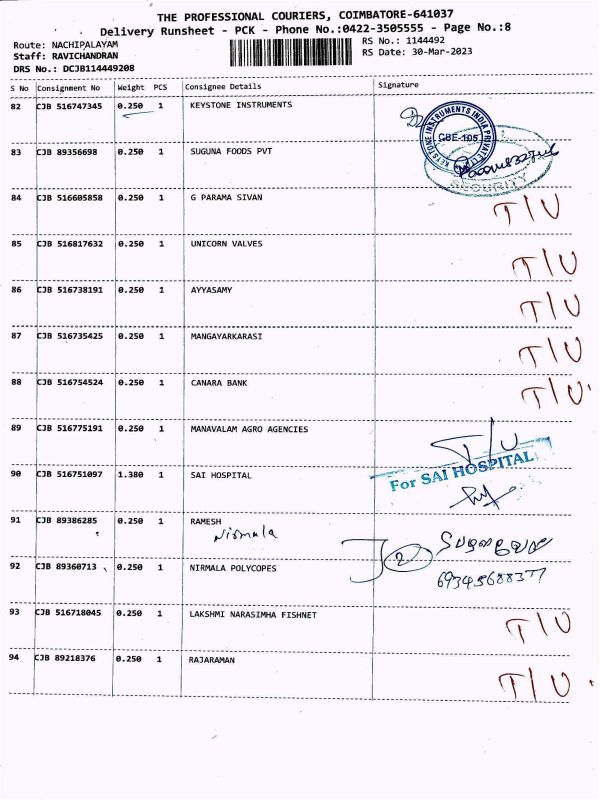 THE PROFESSIONAL COURIERS, COIMBATORE-641037
Delivery Runsheet - PCK - Phone No.:0422-3505555 - Page No.:8
Route: NACHIPALAYAM RS No.: 1144492
Staff: RAVICHANDRAN RS Date: 30-Mar-2023
DRS No.: DCJB114449208
S No Consignment No Weight PCS Consignee Details Signature
82 CJB 516747345 0.250 1 KEYSTONE INSTRUMENTS
KEYSTONE INSTRUMENTS INDIA PRIVATE
CBE-105
83 CJB 89356698 0.250 1 SUGUNA FOODS PVT
SECURITY
84 CJB 516605858 0.250 1 G PARAMA SIVAN T/U
85 CJB 516817632 0.250 1 UNICORN VALVES T/U
86 CJB 516738191 0.250 1 AYYASAMY T/U
87 CJB 516735425 0.250 1 MANGAYARKARASI T/U
88 CJB 516754524 0.250 1 CANARA BANK T/U
89 CJB 516775191 0.250 1 MANAVALAM AGRO AGENCIES T/U
90 CJB 516751097 1.380 1 SAI HOSPITAL For SAI HOSPITAL
91 CJB 89386285 0.250 1 RAMESH
Nirmala
2
92 CJB 89360713 0.250 1 NIRMALA POLYCOPES
93 CJB 516718045 0.250 1 LAKSHMI NARASIMHA FISHNET T/U
94 CJB 89218376 0.250 1 RAJARAMAN T/U